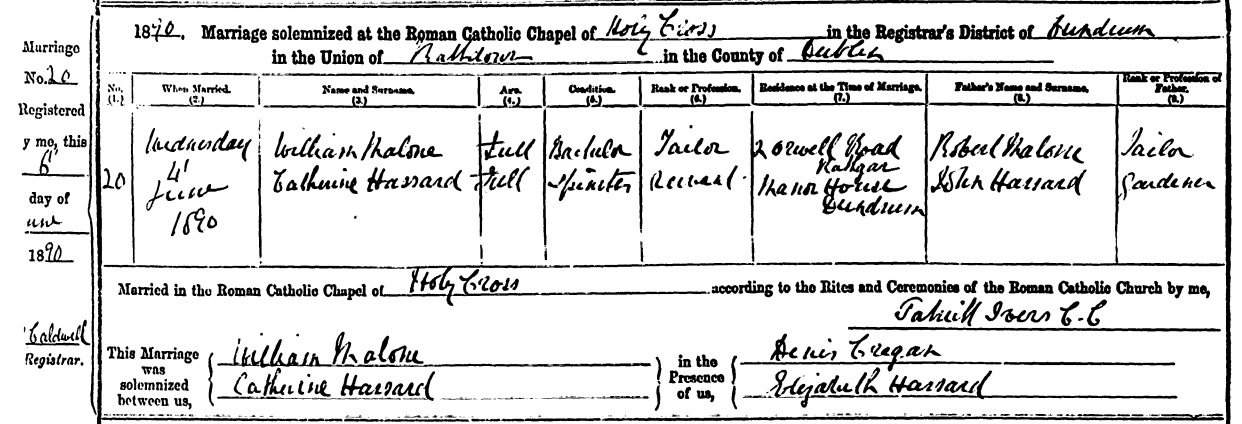 1890. Marriage solemnized at the Roman Catholic Chapel of Holy Cross in the Registrar's District of Dundrum
in the Union of Rathdown in the County of Dublin
Marriage
No. 20
Registered
y me, this
6
day of
une
1890
Caldwell
Registrar.
No. (1.) When Married. (2.) Name and Surname. (3.) Age. (4.) Condition. (5.) Rank or Profession. (6.) Residence at the Time of Marriage. (7.) Father's Name and Surname. (8.) Rank or Profession of Father. (9.)
20 Wednesday 4 June 1890
William Malone Full Bachelor Tailor 2 Orwell Road Rathgar Robert Malone Tailor
Catherine Hassard Full Spinster Servant Manor House Dundrum John Hassard Gardener
Married in the Roman Catholic Chapel of Holy Cross according to the Rites and Ceremonies of the Roman Catholic Church by me,
Patrick Ivers C.C
This Marriage was solemnized between us,
William Malone
Catherine Hassard
in the Presence of us,
Denis Cregan
Elizabeth Hassard